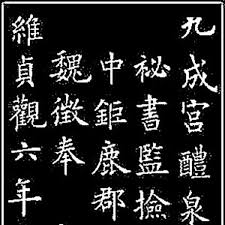 九成宮醴泉
秘書監撿
中鉅鹿郡
魏徵奉
維貞觀六年